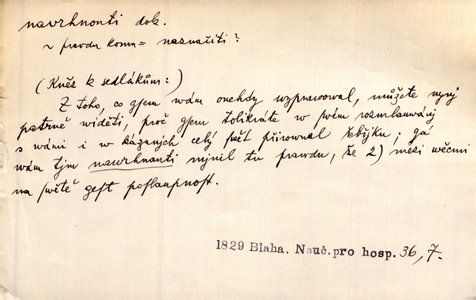 navrhnouti dok.
~ pravdu komu = naznačiti?
(Kněz k sedlákům:)
Z toho, co gsem wám onehdy wyprawowal, můžete nynj
patrně widěti, proč gsem tolikráte w swém rozmlauwánj
s wámi i w kázanjch celý swět přirownal k ; gá
wám tjm nawrhnauti mjnil tu prawdu, že 2) mezi wěcmi
na swětě gest poslaupnost.
1829 Blaha. Nauč. pro hosp. 36, 7.